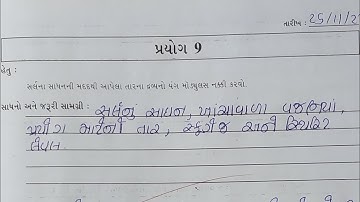 તારીખ : 25/11/2
પ્રયોગ 9
હેતુ :
સર્લના સાધનની મદદથી આપેલા તારના દ્રવ્યનો યંગ મોડ્યુલસ નક્કી કરવો.
સાધનો અને જરૂરી સામગ્રી : સર્લનું સાધન, ખાંચાવાળા વજનિયાં,
પ્રયોગ માટેનો તાર, સ્ક્રૂગેજ અને સ્પિરિટ
લેવલ.